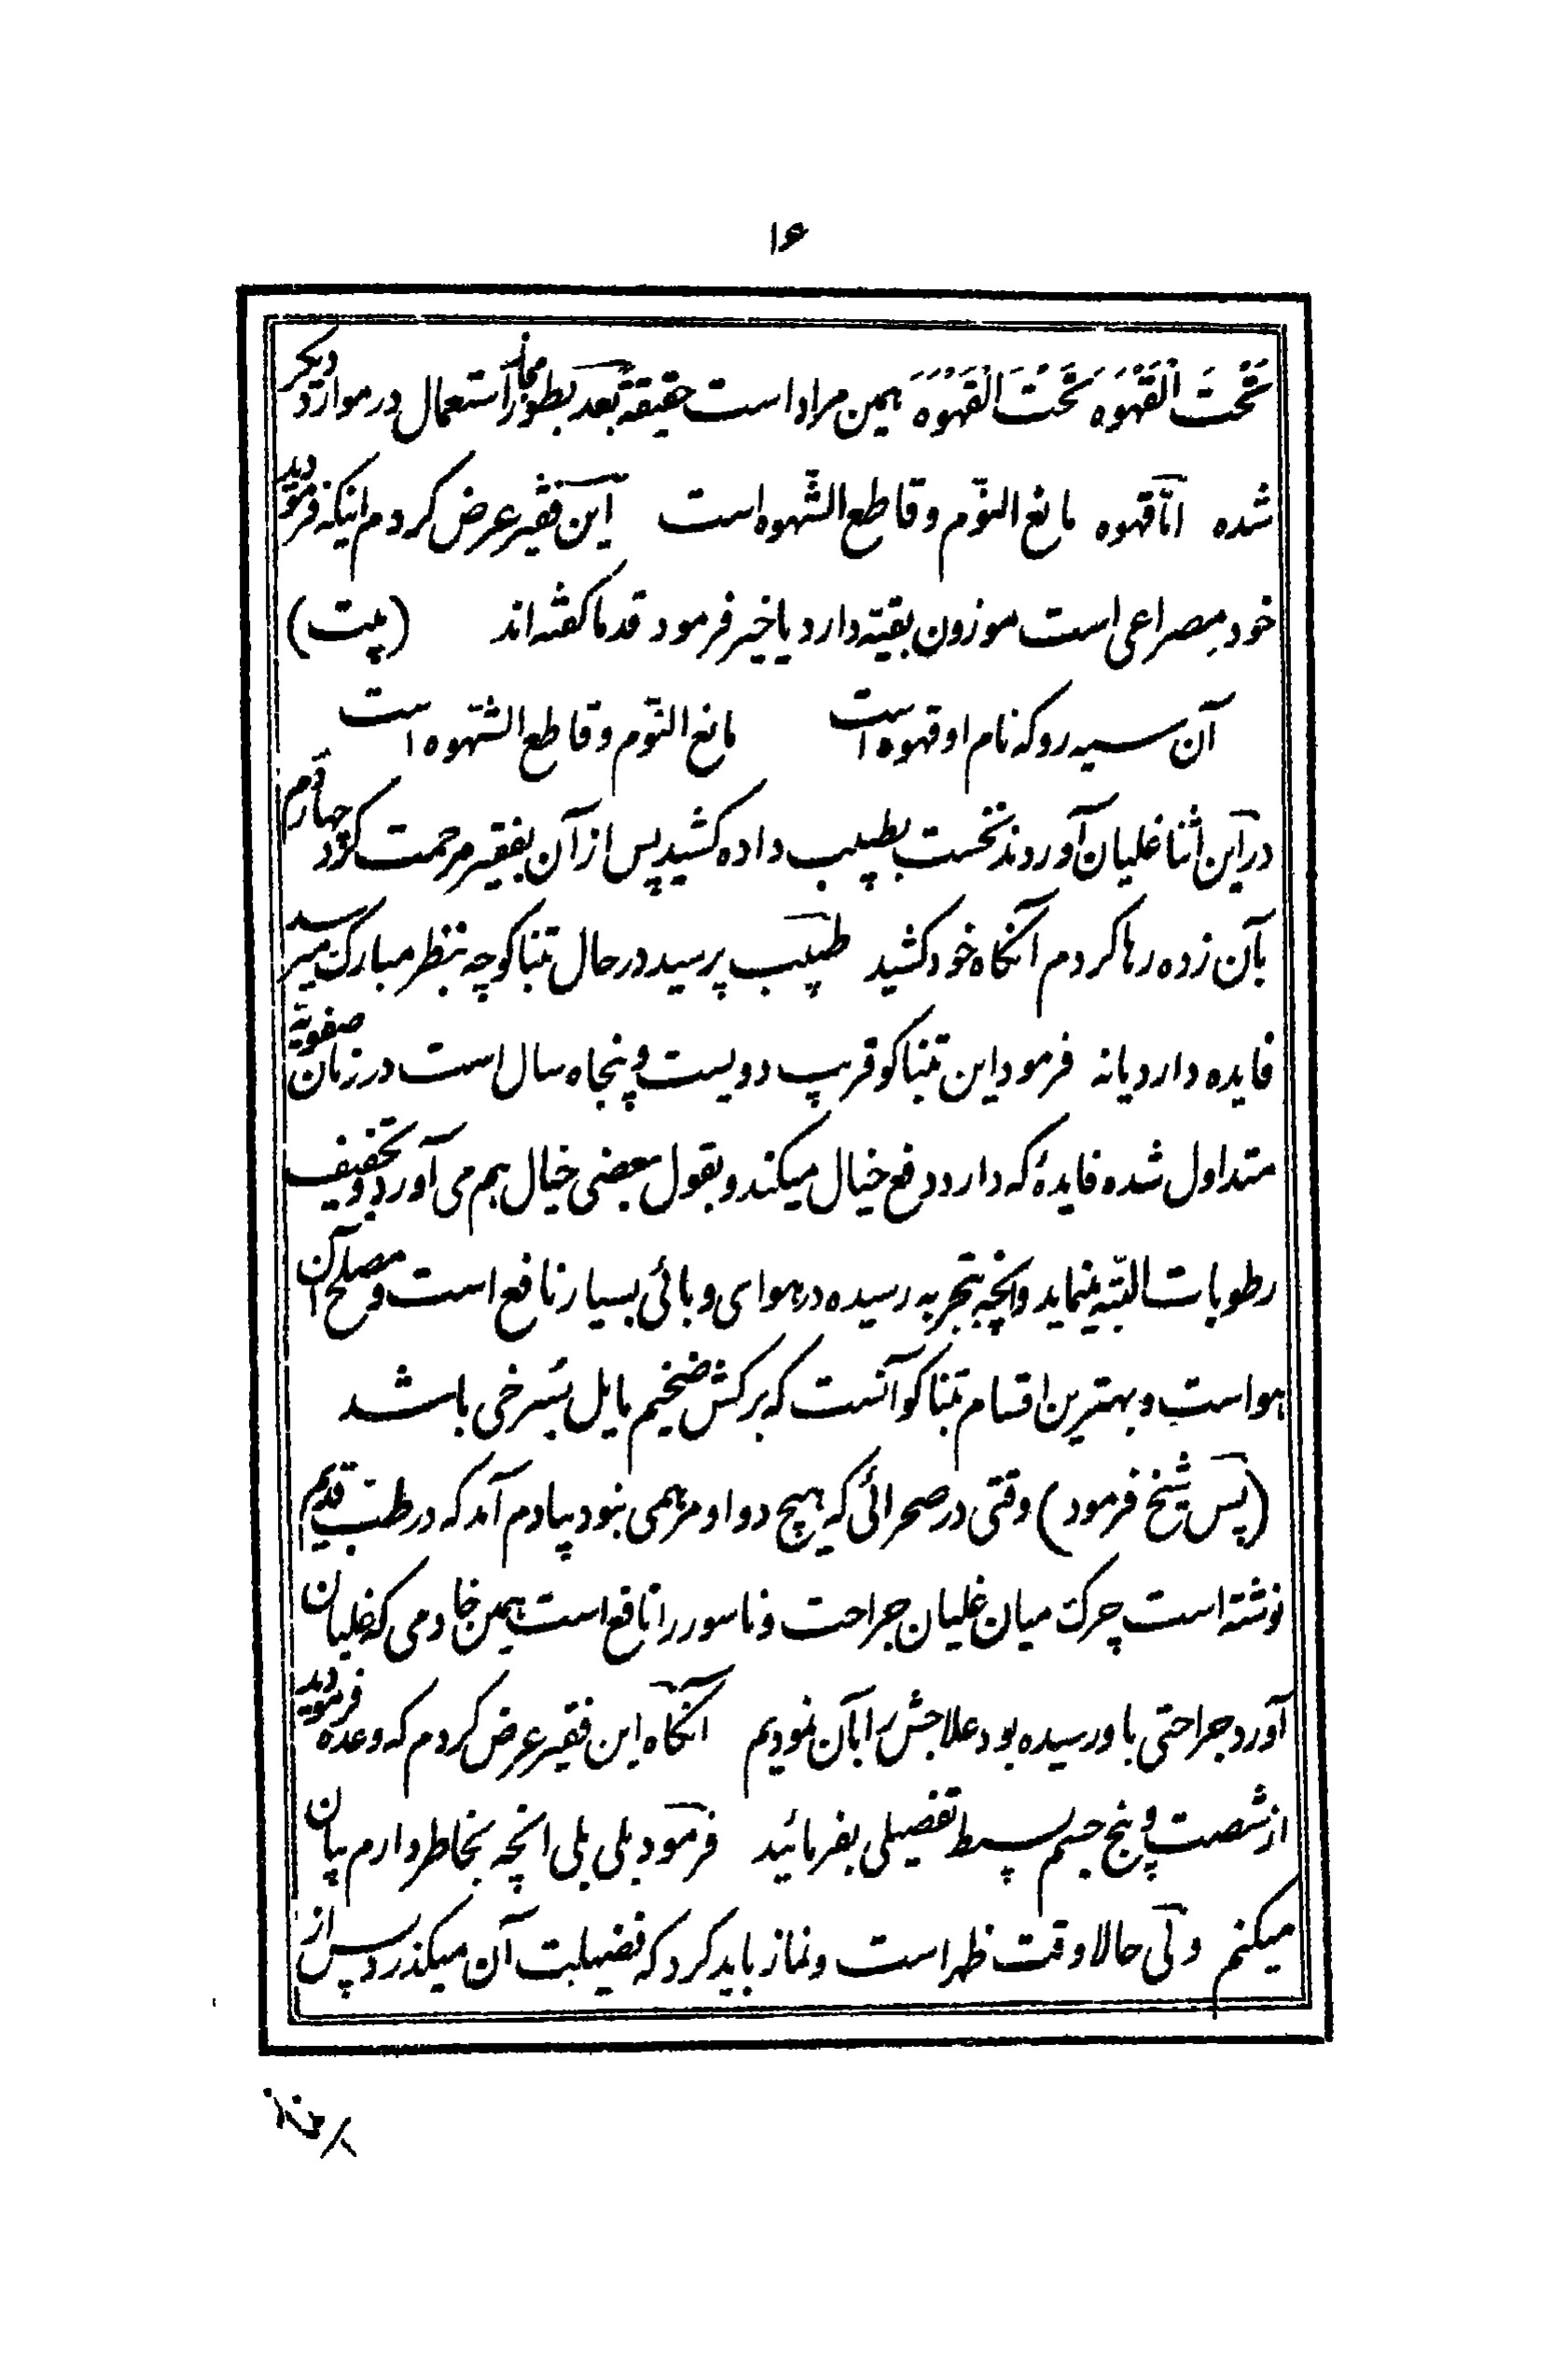 ۱۶
تَحْتَ الْقَهْوَه تَحْتَ الْقَهْوَه همین مراد است حقیقة بعد بطور مجاز استعمال در موارد دیکر
شده امّا قهوه مانع النّوم و قاطع الشّهوه است این فقیر عرض کردم اینکه فرمودید
خود مصراعی است موزون بقیّه دارد یا خیر فرمود قدما کفته‌اند (بیت)
آن سیه رو که نام او قهوه است مانع النّوم و قاطع الشّهوه است
در این اثنا غلیان آوردند نخست بطبیب داده کشید پس از آن بفقیر مرحمت کرد چهار دم
بآن زده رها کردم آنکاه خود کشید طبیب پرسید در حال تنباکو چه بنظر مبارک میرسد
فایده دارد یا نه فرمود این تنباکو قریب دویست و پنجاه سال است در زمان صفویّه
متداول شده فایدهٔ که دارد دفع خیال میکند و بقول بعضی خیال هم می‌آورد و تخفیف
رطوبات البتّه مینماید و انچه بتجربه رسیده در هوای وبائی بسیار نافع است و مصلح آن
هواست و بهترین اقسام تنباکو آنست که برکش ضخیم مایل بسرخی باشد
(پس شیخ فرمود) وقتی در صحرائی که هیچ دوا و مرهمی نبود بیادم آمد که در طب قدیم
نوشته است چرک میان غلیان جراحت و ناسور را نافع است همین خادمی که غلیان
آورد جراحتی باو رسیده بود علاجش را بآن نمودیم آنکاه این فقیر عرض کردم که وعده فرمودید
از شصت و پنج جسم بسیط تفصیلی بفرمائید فرمود بلی بلی انچه بخاطر دارم بیان
میکنم ولی حالا وقت ظهر است و نماز باید کرد که فضیلت آن میکذرد پس از